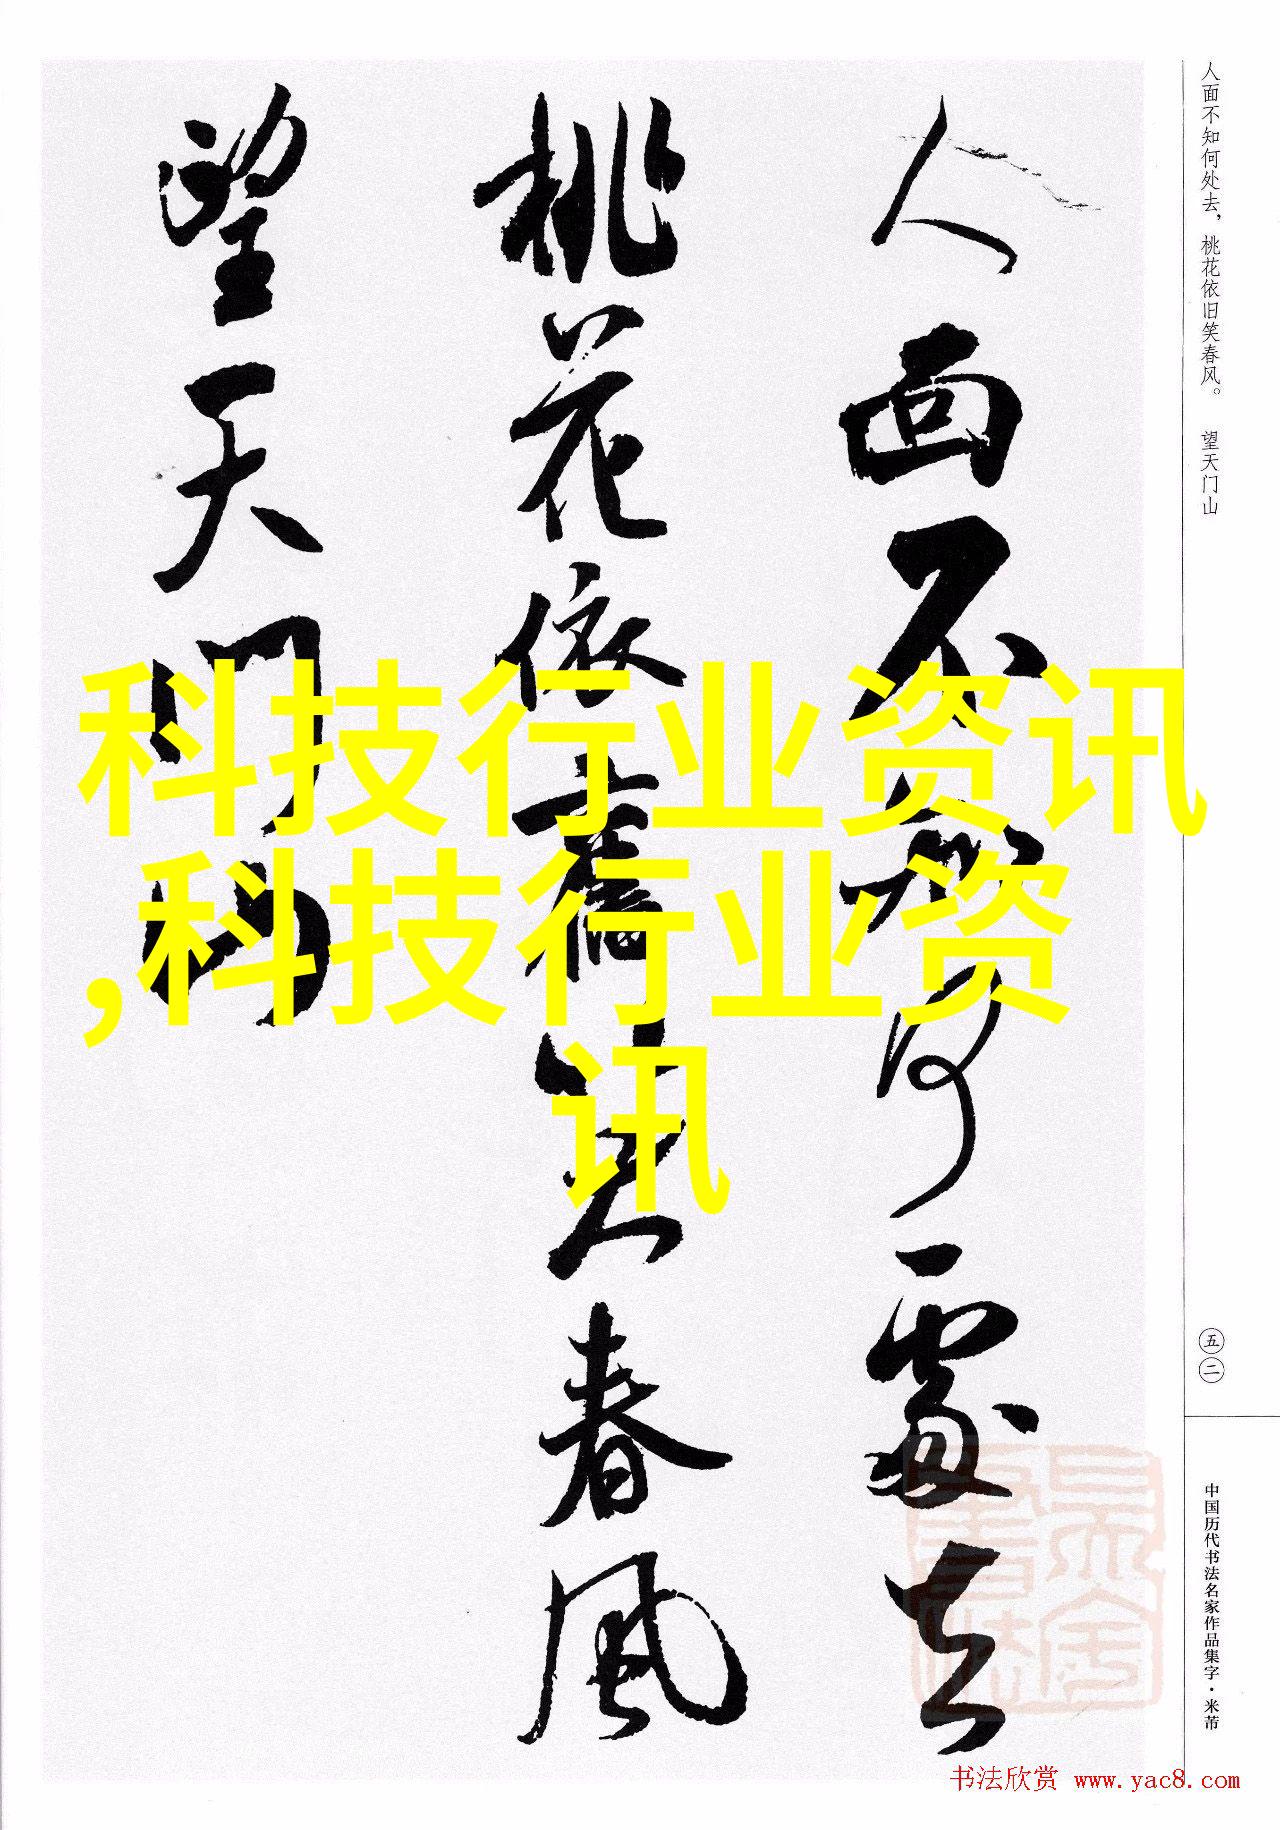 人面不知何處去
桃花依舊笑春風
望天門山
科技行业资讯
,科技行业资
讯
人面不知何处去，桃花依旧笑春风。 望天门山
五二
中国历代书法名家作品集字·米芾
书法欣赏 www.yac8.com